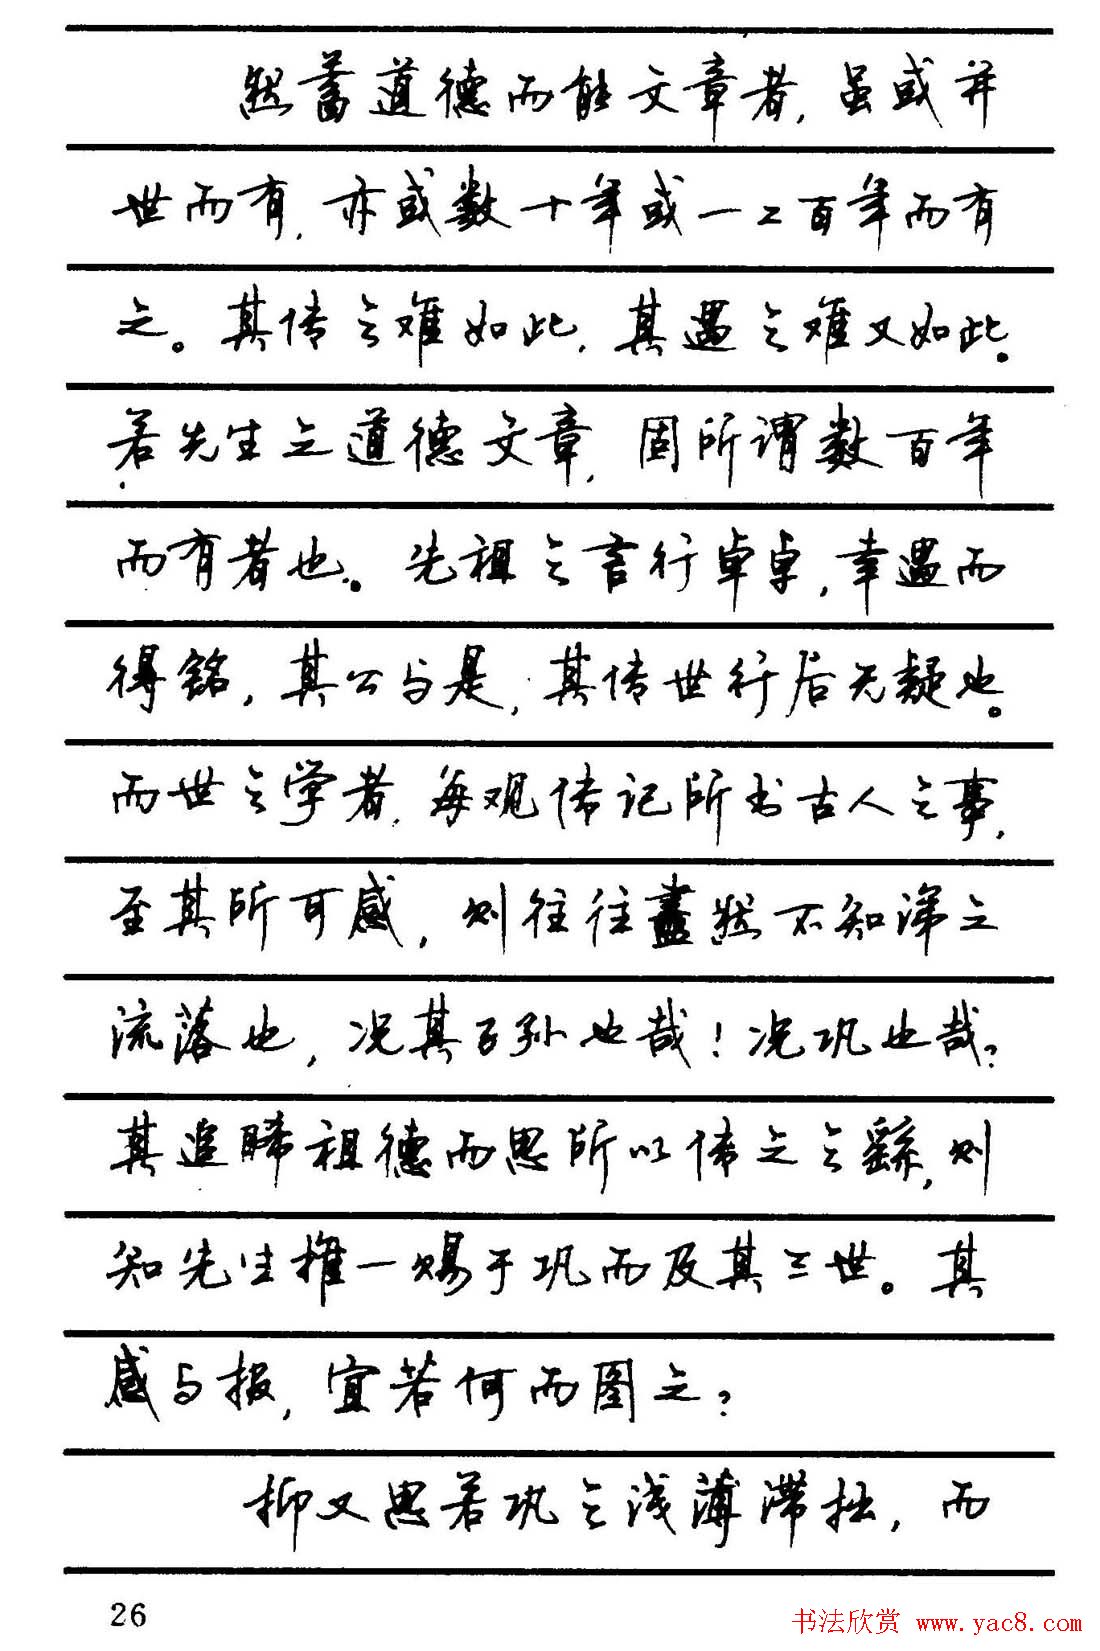 然蓄道德而能文章者，虽或并
世而有，亦或数十年或一二百年而有
之。其传之难如此，其遇之难又如此。
若先生之道德文章，固所谓数百年
而有者也。先祖之言行卓卓，幸遇而
得铭，其公与是，其传世行后无疑也。
而世之学者，每观传记所书古人之事，
至其所可感，则往往衋然不知涕之
流落也，况其子孙也哉！况巩也哉？
其追睎祖德而思所以传之之繇，则
知先生推一赐于巩而及其三世。其
感与报，宜若何而图之？
抑又思若巩之浅薄滞拙，而
26
书法欣赏 www.yac8.com